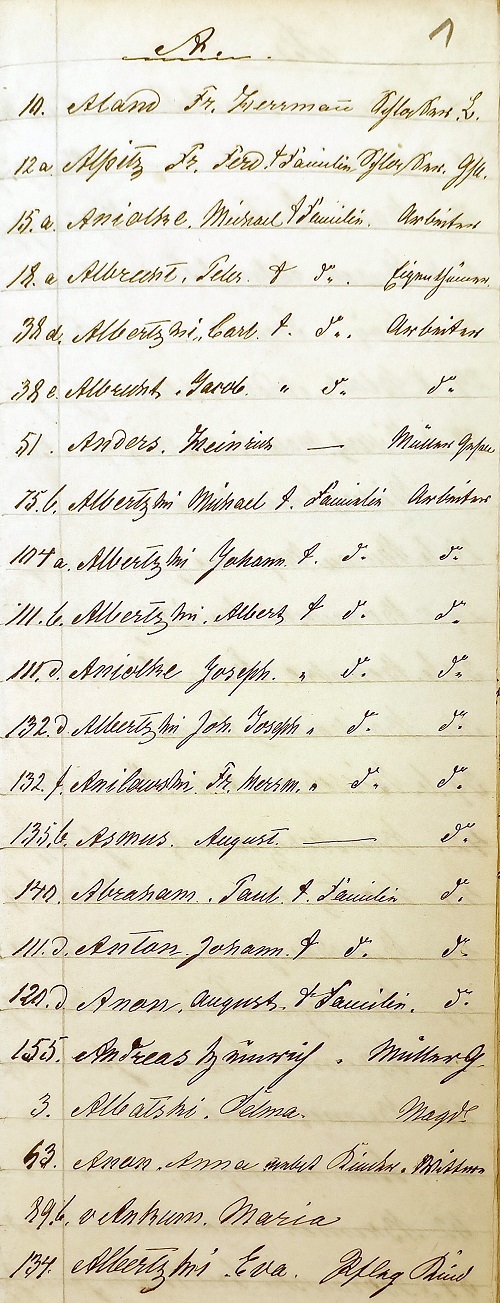 1
A.
10. Aland Fr. Herrmann Schlosser. L.
12a. Alpitz Fr. Ferd. & Familie Schlosser. Gsll.
15.a. Aniolke. Michael & Familie. Arbeiter
18.a Albrecht. Peter. & do. Eigenthümer
38d. Albertzki. Carl. &. do. Arbeiter
38e. Albrecht. Jacob. " do. do.
51. Anders. Heinrich — Müller Geselle
75.b. Albertzki Michael &. Familie Arbeiter
104a. Albertzki Johann. &. do. do.
111.b. Albertzki. Albert & do. do.
111.d. Aniolke Joseph. " do. do.
132.d Albertzki Joh. Joseph " do. do.
132.f. Anilowski. Fr. Herrm. " do. do.
135.b. Asmus. August. — do.
140. Abraham. Paul. &. Familie do.
111.d. Anton. Johann. & do. do.
120.d Anon. August. & Familie. do.
155. Andreas Heinrich. Müller G.
3. Albatski. Selma. Magd.
63. Anon. Anna nebst Kinder. Wittwe
89.b. v Ankum. Maria
134. Albertzki. Eva. Pfleg Kind